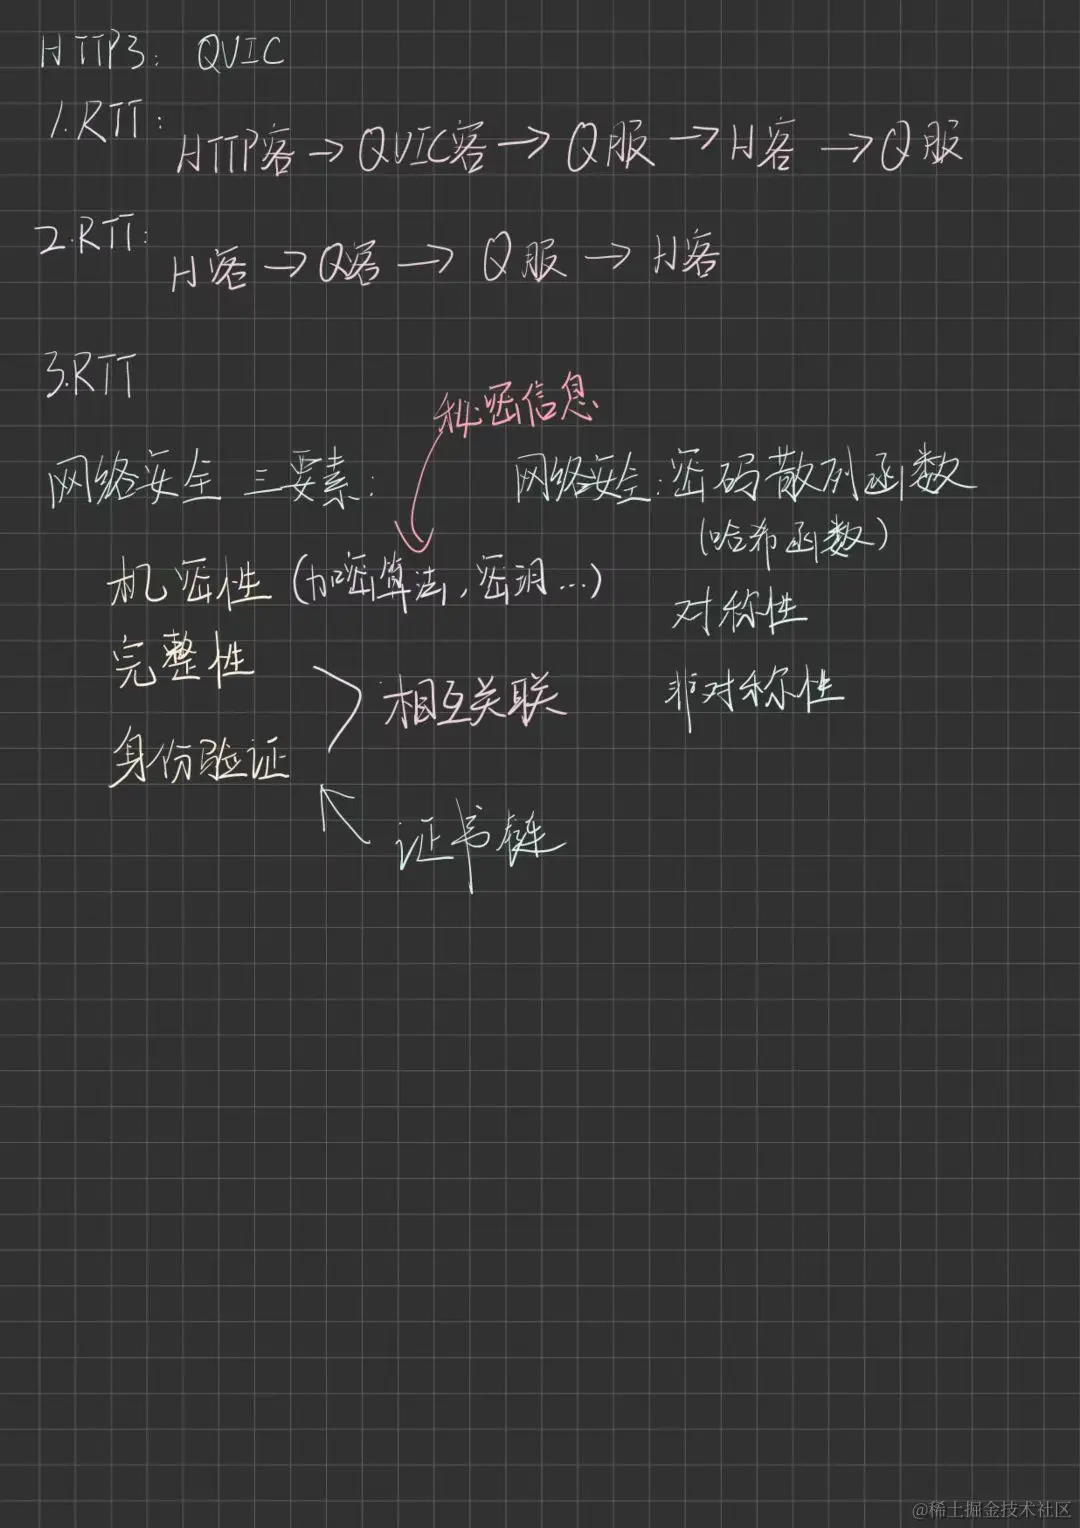 HTTP3: QUIC
1.RTT:
HTTP客→QUIC客→Q服→H客→Q服
2.RTT:
H客→Q客→Q服→H客
3.RTT
秘密信息
网络安全三要素:
网络安全:密码散列函数
(哈希函数)
机密性(加密算法,密钥...)
对称性
完整性
相互关联
非对称性
身份验证
证书链
@稀土掘金技术社区